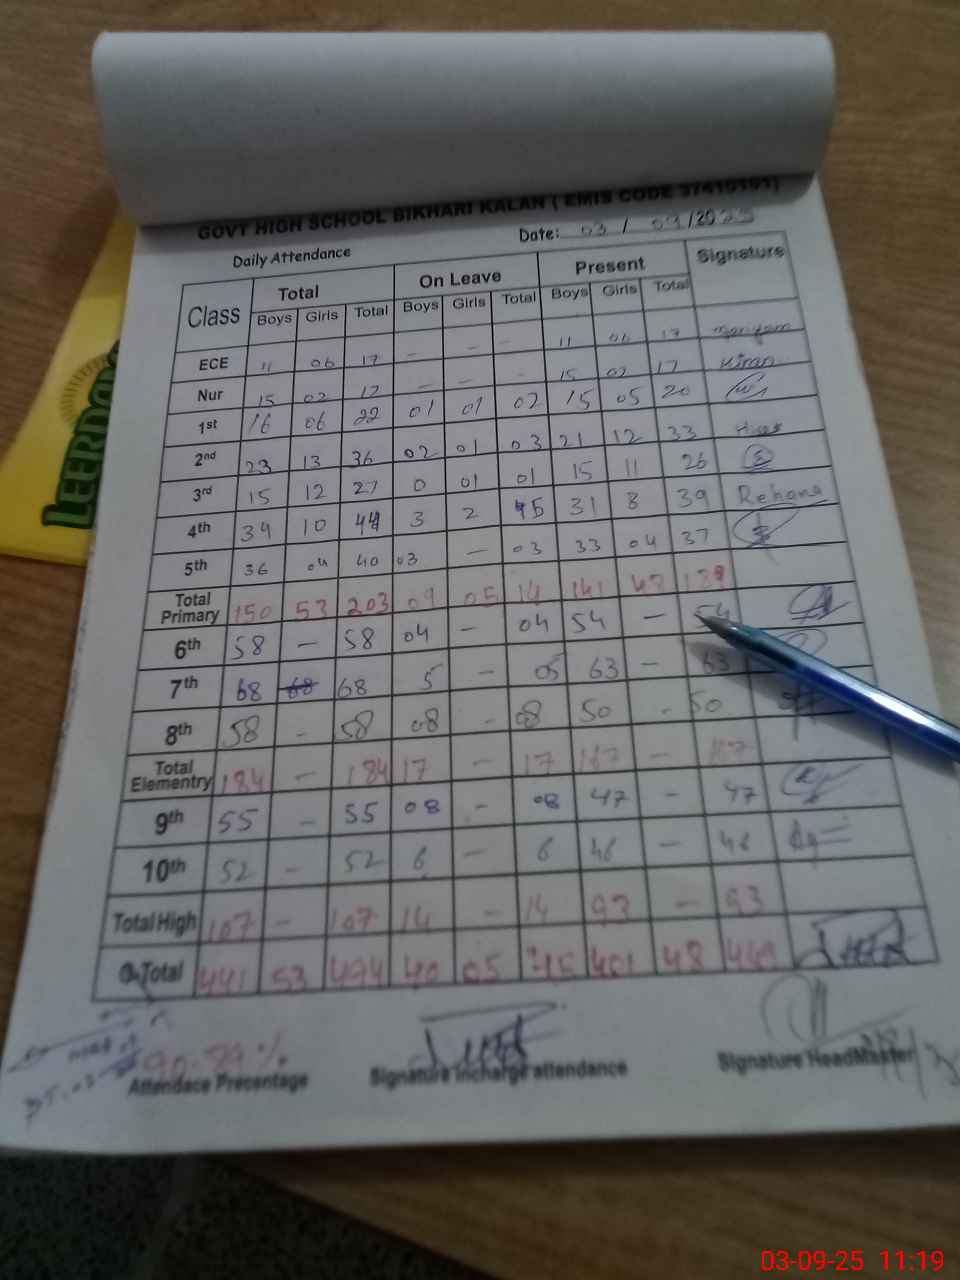 GOVT HIGH SCHOOL BIKHARI KALAN ( EMIS CODE 37410191)
Daily Attendance Date: 03 / 09 /2025
Class Total On Leave Present Signature
Boys Girls Total Boys Girls Total Boys Girls Total
ECE 11 06 17 - - - 11 06 17 Maryam
Nur 15 02 17 - - - 15 02 17 Kiran
1st 16 06 22 01 01 02 15 05 20
2nd 23 13 36 02 01 03 21 12 33
3rd 15 12 27 0 01 01 15 11 26
4th 34 10 44 3 2 5 31 8 39 Rehana
5th 36 04 40 03 - 03 33 04 37
Total Primary 150 53 203 09 05 14 141 48 189
6th 58 - 58 04 - 04 54 - 54
7th 68 68 68 5 - 05 63 - 63
8th 58 - 58 08 - 08 50 - 50
Total Elementry 184 - 184 17 - 17 167 - 167
9th 55 - 55 08 - 08 47 - 47
10th 52 - 52 6 - 6 46 - 46
Total High 107 - 107 14 - 14 93 - 93
G.Total 441 53 494 40 05 45 401 48 449
90.89%
Attendace Precentage Signature Incharge attendance Signature HeadMaster
LEERDAM
03-09-25 11:19